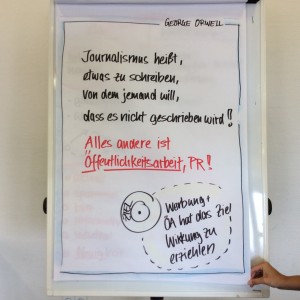 GEORGE ORWELL
Journalismus heißt,
etwas zu schreiben,
von dem jemand will,
dass es nicht geschrieben wird!
Alles andere ist
Öffentlichkeitsarbeit, PR!
ZIEL
Werbung +
ÖA hat das Ziel
Wirkung zu
erziehlen